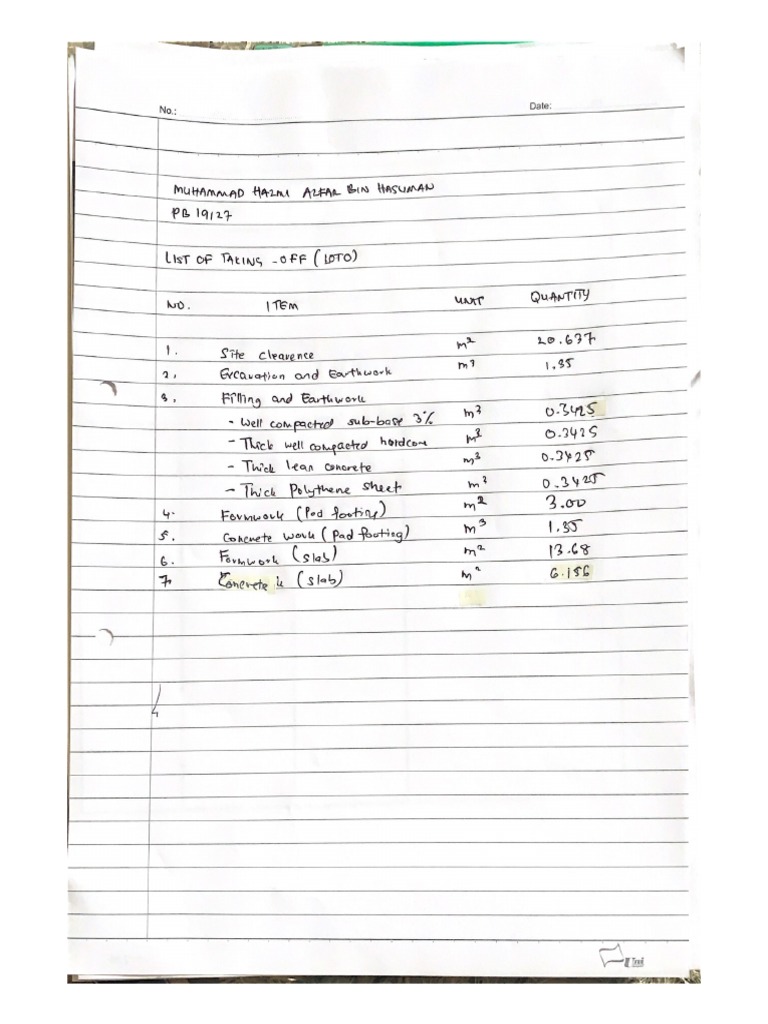 No.: Date:
MUHAMMAD HAZMI AZFAR BIN HASLIMAN
PB 19/27
LIST OF TAKING -OFF (LOTO)
NO. ITEM UNIT QUANTITY
1. Site clearence m² 20.637
2. Excavation and Earthwork m³ 1.35
3. Filling and Earthwork
- Well compacted sub-base 3% m³ 0.3425
- Thick well compacted hardcore m³ 0.3425
- Thick lean concrete m³ 0.3425
- Thick Polythene sheet m² 0.3425
4. Formwork (Pad footing) m² 3.00
5. Concrete work (Pad footing) m³ 1.35
6. Formwork (slab) m² 13.68
7. Concrete (slab) m² 6.156